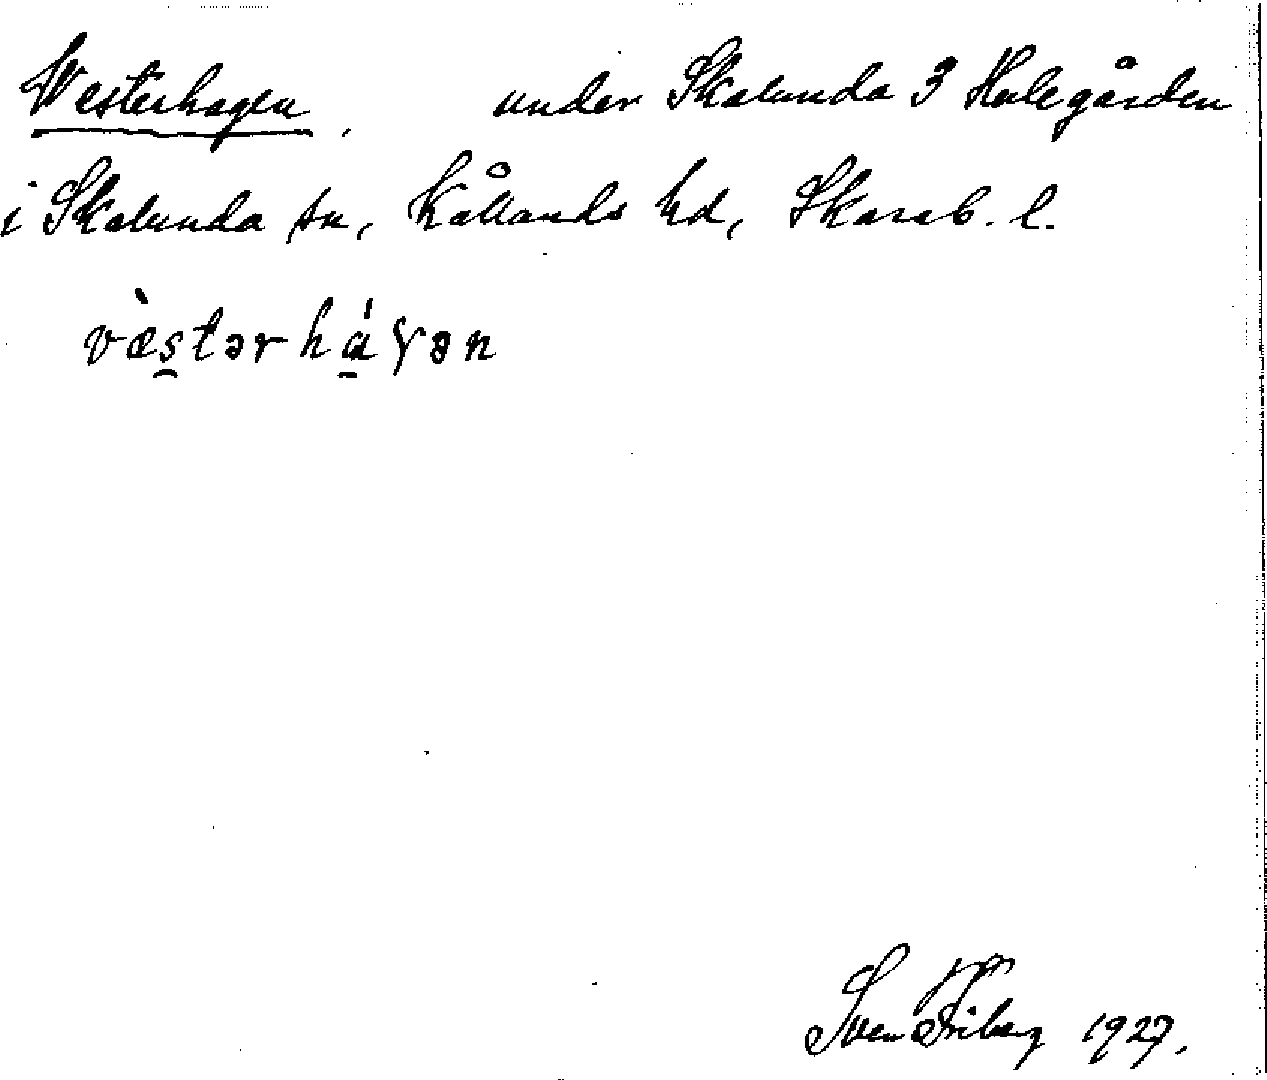 Westerhagen, under Skalunda 3 Hulegården
i Skalunda sn, Kållands hd, Skarab. l.
vὰs̯tərhá̱ɣən
Sven Friberg 1927.